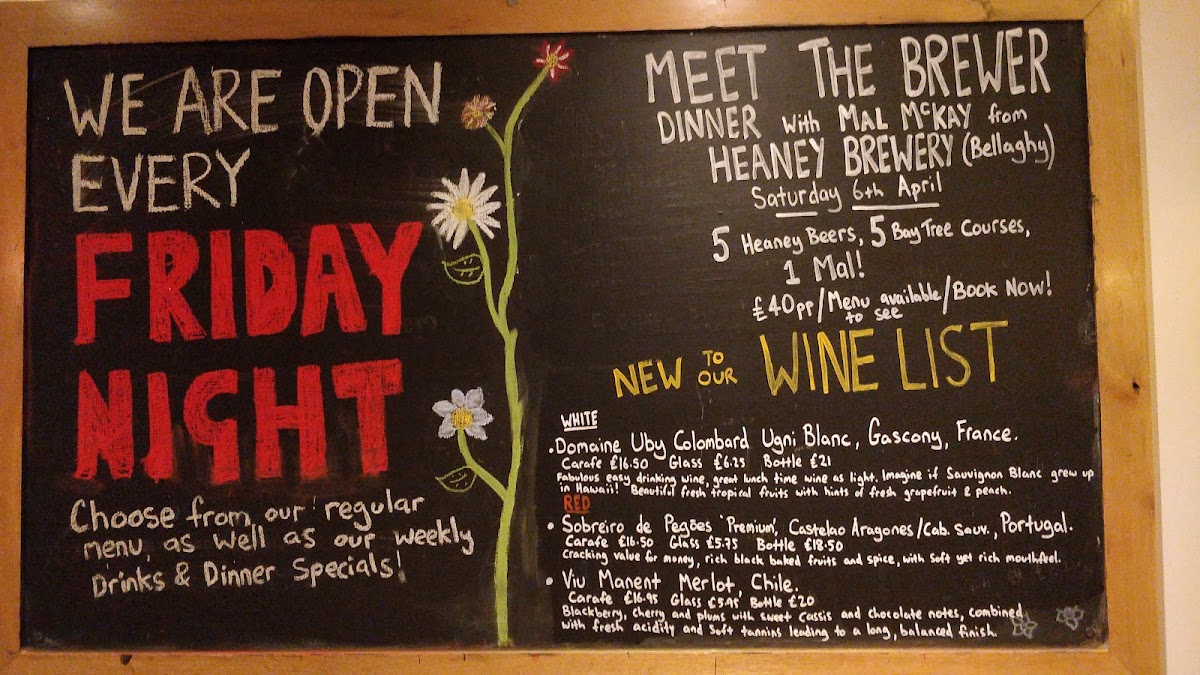 WE ARE OPEN
EVERY
FRIDAY
NIGHT
Choose from our regular
menu, as well as our weekly
Drinks & Dinner Specials!
MEET THE BREWER
DINNER with MAL McKAY from
HEANEY BREWERY (Bellaghy)
Saturday 6th April
5 Heaney Beers, 5 Bay Tree Courses,
1 Mal!
£40pp/Menu available to see/Book Now!
NEW TO OUR WINE LIST
WHITE
• Domaine Uby Colombard Ugni Blanc, Gascony, France.
Carafe £16.50 Glass £6.25 Bottle £21
Fabulous easy drinking wine, great lunch time wine as light. Imagine if Sauvignon Blanc grew up
in Hawaii! Beautiful fresh tropical fruits with hints of fresh grapefruit & peach.
RED
• Sobreiro de Pegões 'Premium', Castelao Aragones/Cab. Sauv., Portugal.
Carafe £16.50 Glass £5.75 Bottle £18.50
Cracking value for money, rich black baked fruits and spice, with soft yet rich mouthfeel.
• Viu Manent Merlot, Chile.
Carafe £16.95 Glass £5.95 Bottle £20
Blackberry, cherry and plums with sweet cassis and chocolate notes, combined
with fresh acidity and soft tannins leading to a long, balanced finish.